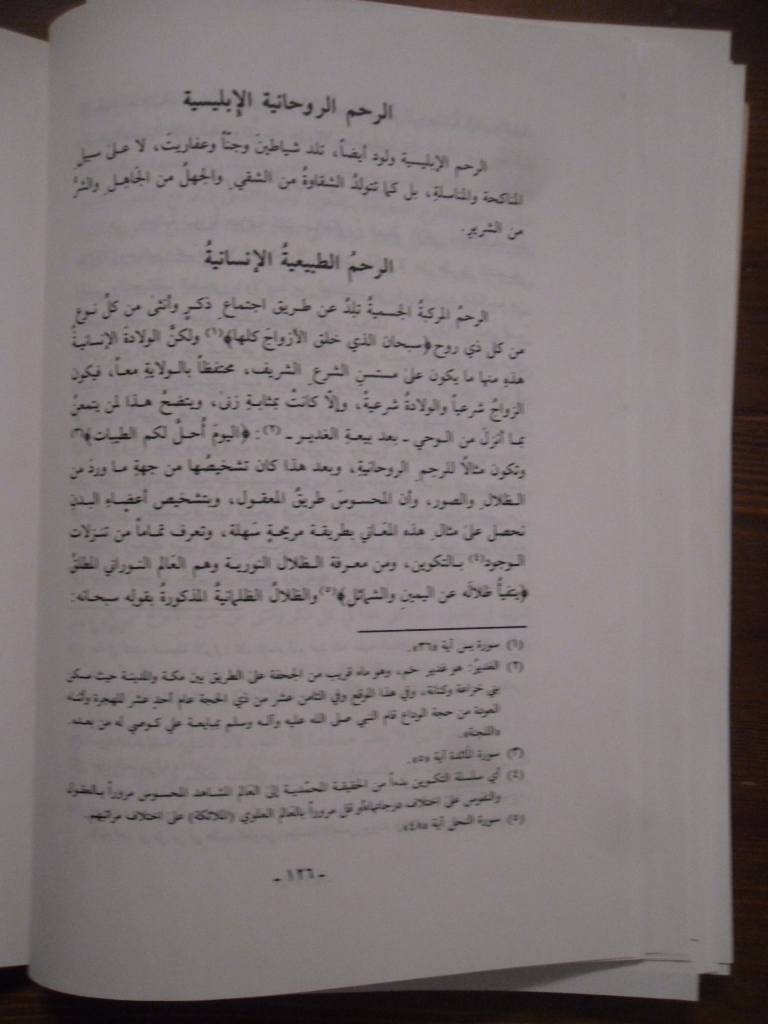 الرحم الروحانية الإبليسية
الرحم الإبليسية ولود أيضاً، تلد شياطينَ وجنّاً وعفاريتَ، لا على سبيلِ
المناكحة والمناسلةِ، بل كما تتولدُ الشقاوةُ من الشقي والجهلُ من الجَاهِلِ والشرُّ
من الشريرِ.
الرحمُ الطبيعيةُ الإنسانيةُ
الرحمُ المركبةُ الجسميةُ تلِدُ عن طريق اجتماعِ ذكرٍ وأنثى من كلُّ نوعٍ
من كل ذي روح ﴿سبحان الذي خلق الأزواجَ كلها﴾(١) ولكنَّ الولادةَ الإنسانيةُ
هذهِ منها ما يكون على مستسنِ الشرعِ الشريف، محتفظاً بالولايةِ معاً، فيكون
الزواجُ شرعياً والولادةُ شرعيةً، وإلّا كانتْ بمثابةِ زنىً، ويتضحُ هذا لمن يتمعنُ
بما أنزلَ من الوحي - بعد بيعةِ الغديرِ - (٢): ﴿اليومَ أُحلَّ لكم الطيبات﴾(٣)
وتكون مثالًا للرحمِ الروحانيةِ، وبعد هذا كان تشخيصُها من جهةِ ما وردَ من
الظلالِ والصورِ، وأن المحسوسَ طريقُ المعقول، وبتشخيص أعضاءِ البدنِ
نحصل على مثالِ هذه المعَاني بطريقة مريحةٍ سَهلة، وتعرف تماماً من تنزلات
الوجود(٤) بالتكوين، ومن معرفة الظلال النورية وهم العَالم النوراني المطلقُ
﴿يتفيأُ ظلالَه عن اليمينِ والشمائل﴾(٥) والظلالُ الظلمانيةُ المذكورةُ بقوله سبحانه:
(١) سورة يس آية «٣٦».
(٢) الغديرُ: هو غدير خم، وهو ماء قريب من الجحفة على الطريق بين مكة والمدينة حيث مسكن
بني خزاعة وكنانة، وفي هذا الموقع وفي الثامن عشر من ذي الحجة عام أحدِ عشر للهجرة وأثناء
العودة من حجة الوداع قام النبي صلى الله عليه وآله وسلم بمبايعة علي كوصي له من بعده.
(٣) سورة المائدة آية «٥».
(٤) أي سلسلة التكوين بدءاً من الحقيقة المحمّدية إلى العَالم المشاهد المحسوس مروراً بالعقول
والنفوس على اختلاف درجاتها أو قل مروراً بالعَالم العلوي (الملائكة) على اختلاف مراتبهم.
(٥) سورة النحل آية «٤٨».
- ١٢٦ -